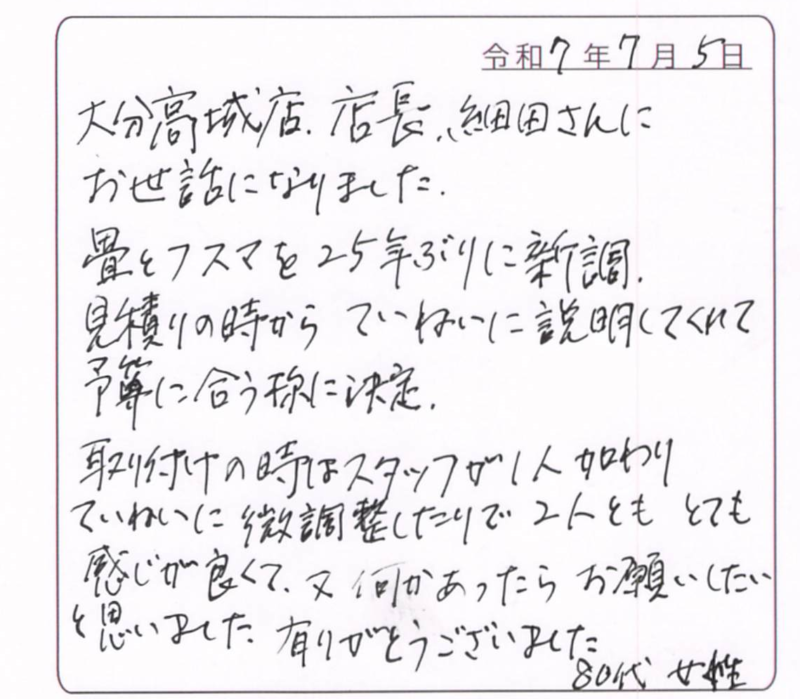 令和7年7月5日
大分高城店、店長、細田さんに
お世話になりました。
畳とフスマを25年ぶりに新調。
見積りの時から ていねいに説明してくれて
予算に合う様に決定。
取り付けの時はスタッフが1人加わり
ていねいに微調整したりで2人とも とても
感じが良くて、又何かあったら お願いしたい
と思いました 有りがとうございました
80代 女性